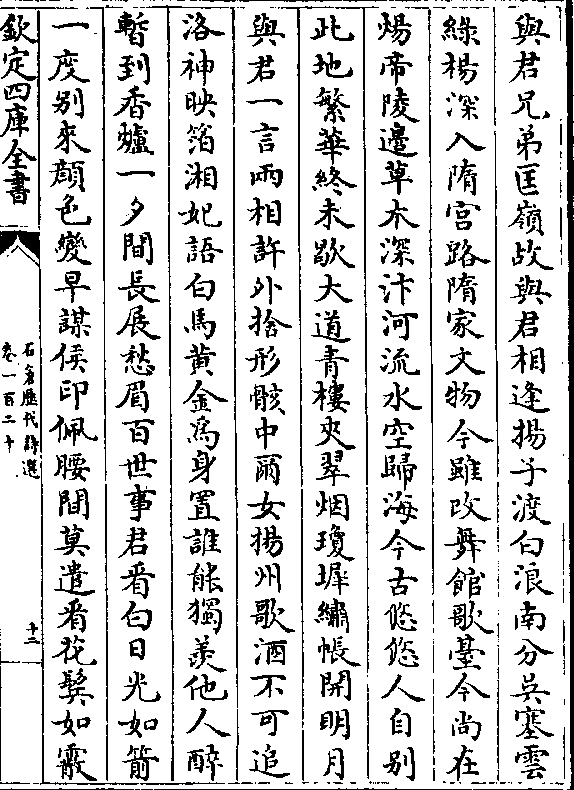 與君兄弟匡嶺故與君相逢揚子渡白浪南分吳塞雲
綠楊深入隋宮路隋家文物今雖改舞館歌臺今尚在
煬帝陵邉草木深汴河流水空歸海今古悠悠人自别
此地繁華終未歇大道青樓夾翠烟瓊墀繡帳開明月
與君一言兩相許外捨形骸中爾女揚州歌酒不可追
洛神映箔湘妃語白馬黄金為身置誰能獨羨他人醉
暫到香爐一夕間長展愁眉百世事君看白日光如箭
一度别來顔色變早謀侯印佩腰間莫遣看花鬢如霰
欽定四庫全書
石倉歴代詩選
卷一百二十
十二